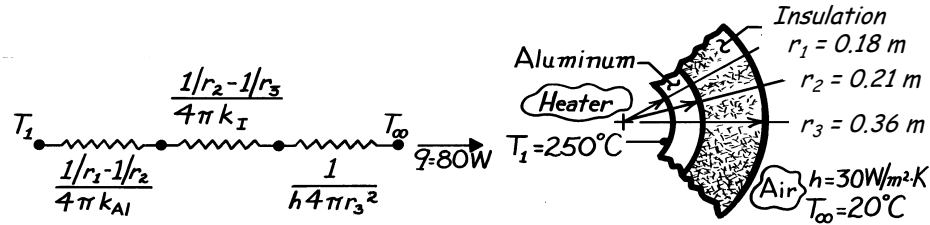 T₁
1/r₁-1/r₂
4πk_Al
1/r₂-1/r₃
4πk_I
1
h4πr₃²
T∞
q=80W
Aluminum
Heater
T₁=250°C
Insulation
r₁ = 0.18 m
r₂ = 0.21 m
r₃ = 0.36 m
Air
h=30W/m²·K
T∞=20°C